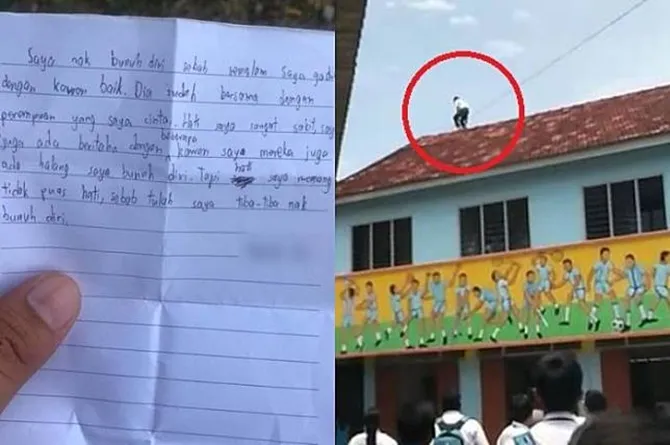 Saya nak bunuh diri sebab semalam saya gaduh
dengan kawan baik. Dia sudah bersama dengan
perempuan yang saya cinta. Hati saya sangat sakit, saya
juga ada beritahu dengan bahawa kawan saya mereka juga
ada halang saya bunuh diri. Tapi hati saya memang
tidak puas hati, sebab itulah saya tiba-tiba nak
bunuh diri.